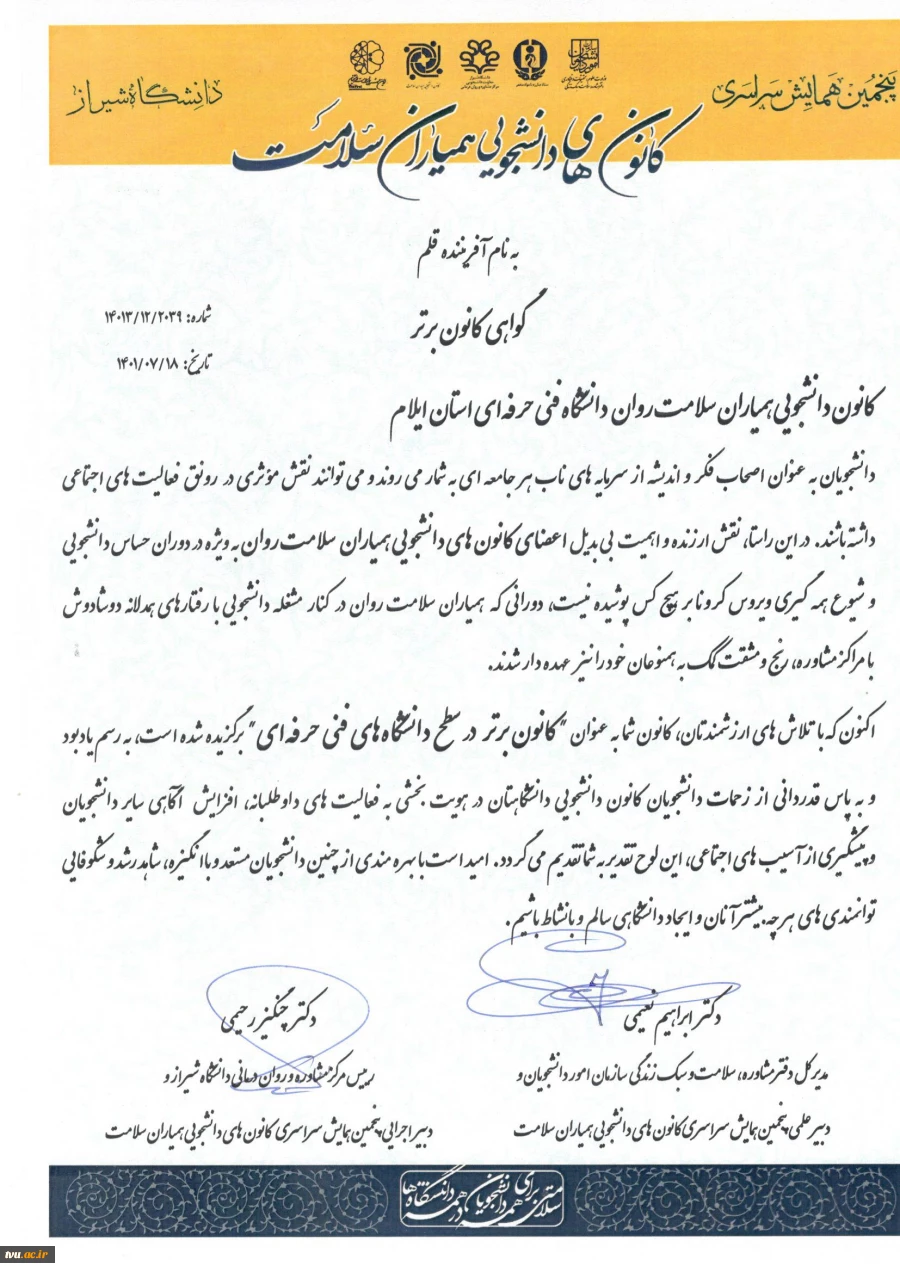 پنجمین همایش سراسری
دانشگاه شیراز
کانون های دانشجویی همیاران سلامت
به نام آفریننده قلم
گواهی کانون برتر
شماره: ۱۴۰۱۳/۱۲/۲۰۳۹
تاریخ: ۱۴۰۱/۰۷/۱۸
کانون دانشجویی همیاران سلامت روان دانشگاه فنی حرفه ای استان ایلام
دانشجویان به عنوان اصحاب فکر و اندیشه از سرمایه های ناب هر جامعه ای به شمار می روند و می توانند نقش مؤثری در رونق فعالیت های اجتماعی
داشته باشند. در این راستا، نقش ارزنده و اهمیت بی بدیل اعضای کانون های دانشجویی همیاران سلامت روان به ویژه در دوران حساس دانشجویی
و شیوع همه گیری ویروس کرونا بر هیچ کس پوشیده نیست، دورانی که همیاران سلامت روان در کنار مشغله دانشجویی با رفتارهای همدلانه دوشادوش
با مراکز مشاوره، رنج و مشقت کمک به همنوعان خود را نیز عهده دار شدند.
اکنون که با تلاش های ارزشمندتان، کانون شما به عنوان "کانون برتر در سطح دانشگاه های فنی حرفه ای" برگزیده شده است، به رسم یادبود
و به پاس قدردانی از زحمات دانشجویان کانون دانشجویی دانشگاهتان در هویت بخشی به فعالیت های داوطلبانه، افزایش آگاهی سایر دانشجویان
و پیشگیری از آسیب های اجتماعی، این لوح تقدیر به شما تقدیم می گردد. امید است با بهره مندی از چنین دانشجویان مستعد و با انگیزه، شاهد رشد و شکوفایی
توانمندی های هر چه بیشتر آنان و ایجاد دانشگاهی سالم و بانشاط باشیم.
دکتر ابراهیم نعیمی
مدیر کل دفتر مشاوره، سلامت و سبک زندگی سازمان امور دانشجویان و
دبیر علمی پنجمین همایش سراسری کانون های دانشجویی همیاران سلامت
دکتر چنگیز رحیمی
رییس مرکز مشاوره و روان درمانی دانشگاه شیراز و
دبیر اجرایی پنجمین همایش سراسری کانون های دانشجویی همیاران سلامت
سلامتی برای همه دانشجویان در همه دانشگاه ها
tvu.ac.ir